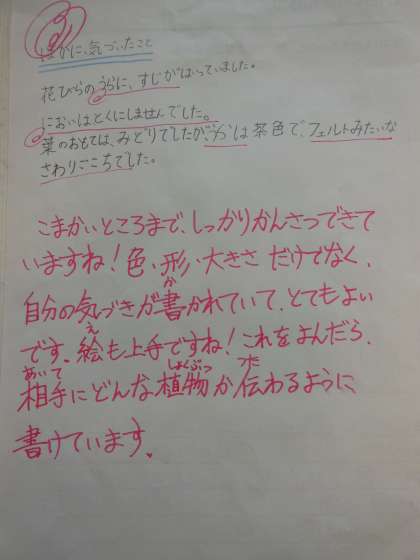 ほかに、気づいたこと
花びらのうらに、すじがはいっていました。
においはとくにしませんでした。
葉のおもては、みどりでしたが、うらは茶色で、フェルトみたいな
さわりごこちでした。
こまかいところまで、しっかりかんさつできて
いますね!色、形、大きさだけでなく、
か
自分の気づきが書かれていて、とてもよい
え
です。絵も上手ですね!これをよんだら、
あいて しょくぶつ つた
相手にどんな植物か伝わるように
書けています。